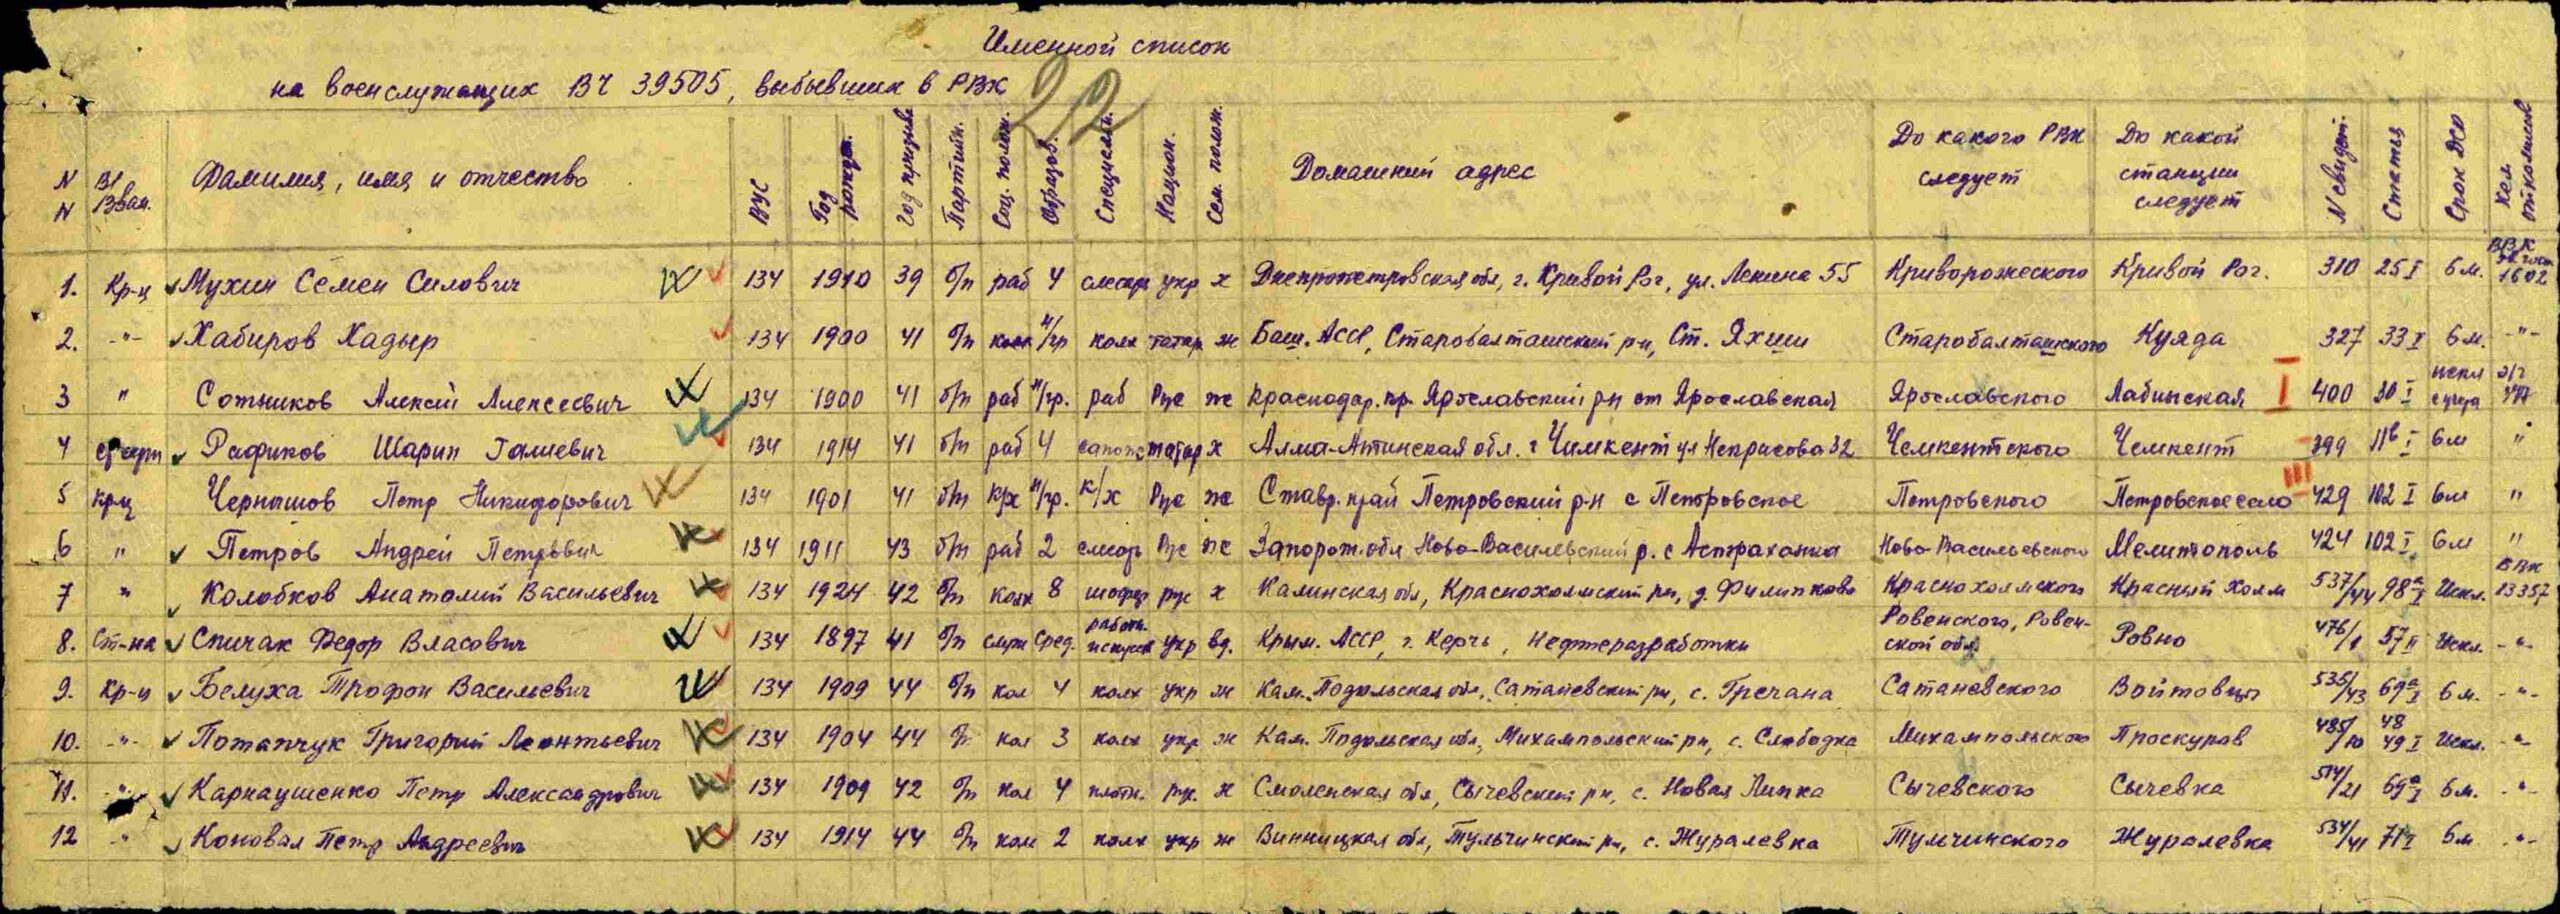 Именной список
на военслужащих ВЧ 39505, выбывших в РВК
22
N N В/Зван. Фамилия, имя и отчество ВУС Год рожд. Год призыва Партийн. Соц. полож. Образов. Специальн. Национ. Сем. полож. Домашний адрес До какого РВК следует До какой станции следует N свидет. Статья Срок ДКО Кем откомисов
1. Кр-ц Мухин Семен Силович 134 1910 39 б/п раб 4 слесарь укр х Днепропетровская обл, г. Кривой Рог, ул. Ленина 55 Криворожского Кривой Рог. 310 25 I 6 м. ВВК 1602
2. -"- Хабиров Хадыр 134 1900 41 б/п колх н/гр колх татар ж Баш. АССР, Старобалташский р-н, Ст. Яхши Старобалташского Куяда 327 33 I 6 м. -"-
3 " Сотников Алексей Алексеевич 134 1900 41 б/п раб н/гр. раб Рус ж Краснодар. кр. Ярославский р-н ст Ярославская Ярославского Лабинская I 400 30 I искл с учета
4 ст серж Рафиков Шарип Галиевич 134 1914 41 б/п раб 4 сапожн татар х Алма-Атинская обл. г Чимкент ул Некрасова 32 Чемкентского Чемкент 399 11б I 6м "
5 кр-ц Чернышов Петр Никифорович 134 1901 41 б/п к/х н/гр. к/х Рус ж Ставр. край Петровский р-н с Петровское Петровского Петровское село III 429 102 I 6м "
6 " Петров Андрей Петрович 134 1911 43 б/п раб 2 слесарь Рус ж Запорож. обл Ново-Василевский р. с Астраханка Ново-Васильевского Мелитополь 424 102 I 6м "
7 " Колобков Анатолий Васильевич 134 1924 42 б/п колх 8 шофер рус х Калинская обл, Краснохолмский рн, д. Филипково Краснохолмского Красный Холм 537/44 98а I Искл. ВВК 13357
8. Ст-на Спичак Федор Власович 134 1897 41 б/п служ Сред. работн. искусств укр вд. Крым. АССР, г. Керчь, Нефтеразработки Ровенского, Ровенской обл. Ровно 476/1 57 II Искл. -"-
9. Кр-ц Белуха Трофон Василиевич 134 1909 44 б/п кол 4 колх укр ж Кам. Подольская обл, Сатановский рн, с. Гречана Сатановского Войтовцы 535/43 69а I 6 м. -"-
10. -"- Потапчук Григорий Леонтьевич 134 1904 44 б/п кол 3 колх укр ж Кам. Подольская обл, Михампольский рн, с. Слободка Михампольского Проскуров 485/10 48 49 I Искл. -"-
11. -"- Карнаушенко Петр Александрович 134 1909 42 б/п кол 4 плотн. рус. ж Смоленская обл, Сычевский рн, с. Новая Липка Сычевского Сычевка 514/21 69а I 6 м. -"-
12 -"- Коновал Петр Андреевич 134 1914 44 б/п кол 2 колх укр ж Винницкая обл, Тульчинский рн, с. Журалевка Тульчинского Журалевка 534/41 71 I 6 м -"-